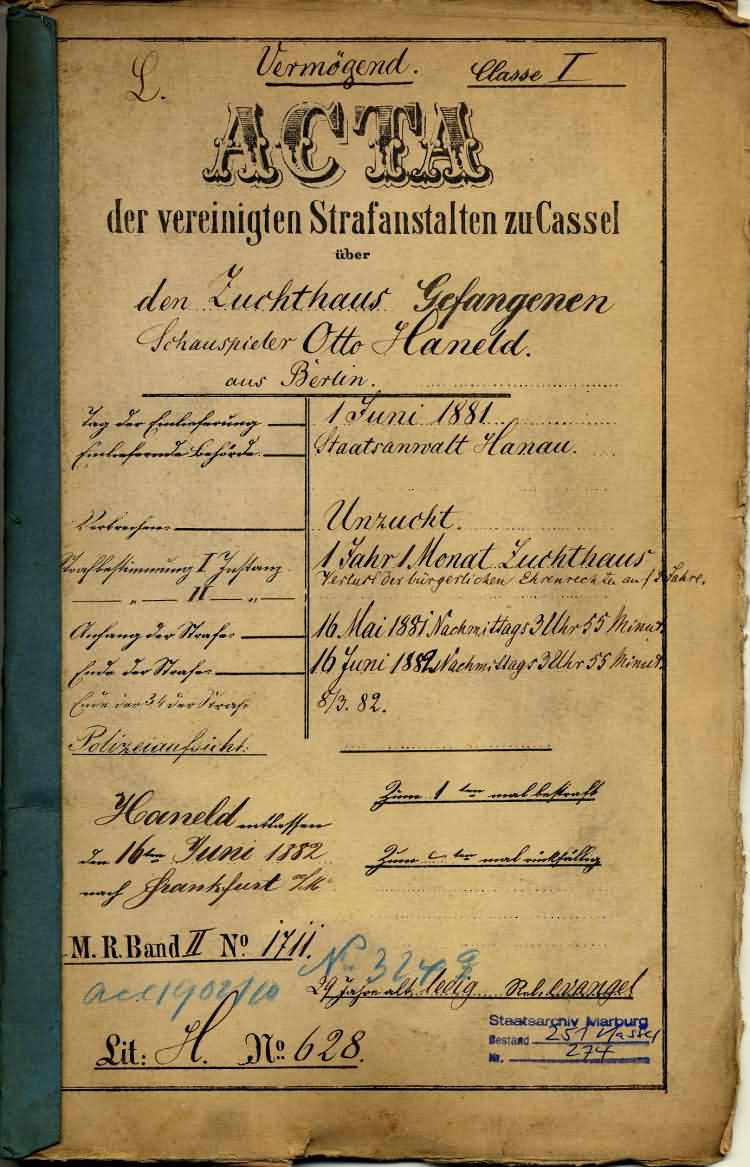 L.
Vermögend.
Classe I
ACTA
der vereinigten Strafanstalten zu Cassel
über
den Zuchthaus Gefangenen
Schauspieler Otto Haneld.
aus Berlin.
Tag der Einlieferung 1 Juni 1881
Einliefernde Behörde. Staatsanwalt Hanau.
Verbrechen: Unzucht.
Strafbestimmung I Instanz 1 Jahr 1 Monat Zuchthaus
Verlust der bürgerlichen Ehrenrechte auf Jahre.
— „ — II — „ —
Anfang der Strafe: 16 Mai 1881 Nachmittags 3 Uhr 55 Minut.
Ende der Strafe: 16 Juni 1882 Nachmittags 3 Uhr 55 Minut.
Ende der 3/4 der Strafe 8/3. 82.
Polizeiaufsicht:
Zum 1 ten mal bestraft
Haneld entlassen
den 16ten Juni 1882
Zum ten mal rückfällig
nach Frankfurt a/M
M. R. Band II No 1711.
No 3249
acc 1902/10
29 Jahre alt, ledig Rel. evangel
Staatsarchiv Marburg
Bestand 251 Kassel
Nr. 274
Lit: H. No 628.